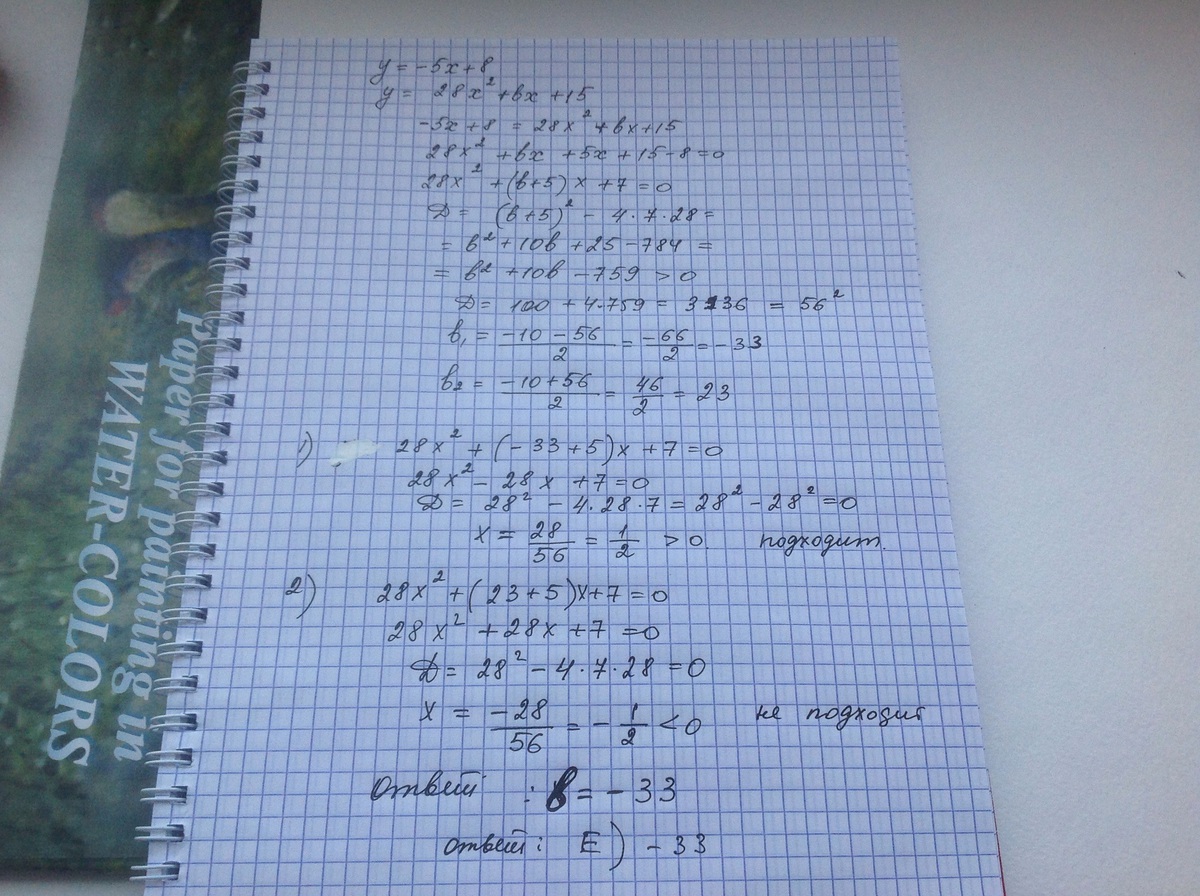 Paper for painting in
WATER-COLORS
y = -5x+8
y = 28x² +вx +15
-5x+8 = 28x² +вx+15
28x² +вx +5x +15-8=0
28x² +(в+5)x +7=0
D= (в+5)² - 4·7·28=
= в²+10в +25-784 =
= в² +10в -759 > 0
D= 100 +4·759 = 3136 = 56²
в₁ = (-10-56)/2 = -66/2 = -33
в₂ = (-10+56)/2 = 46/2 = 23
1) 28x² +(-33+5)x +7=0
28x² - 28x +7=0
D= 28² - 4·28·7 = 28² - 28² =0
x = 28/56 = 1/2 >0. подходит.
2) 28x² +(23+5)x+7=0
28x² +28x+7 =0
D= 28² - 4·7·28 =0
x = -28/56 = -1/2 <0 не подходит
Ответ : в= -33
Ответ: E) -33